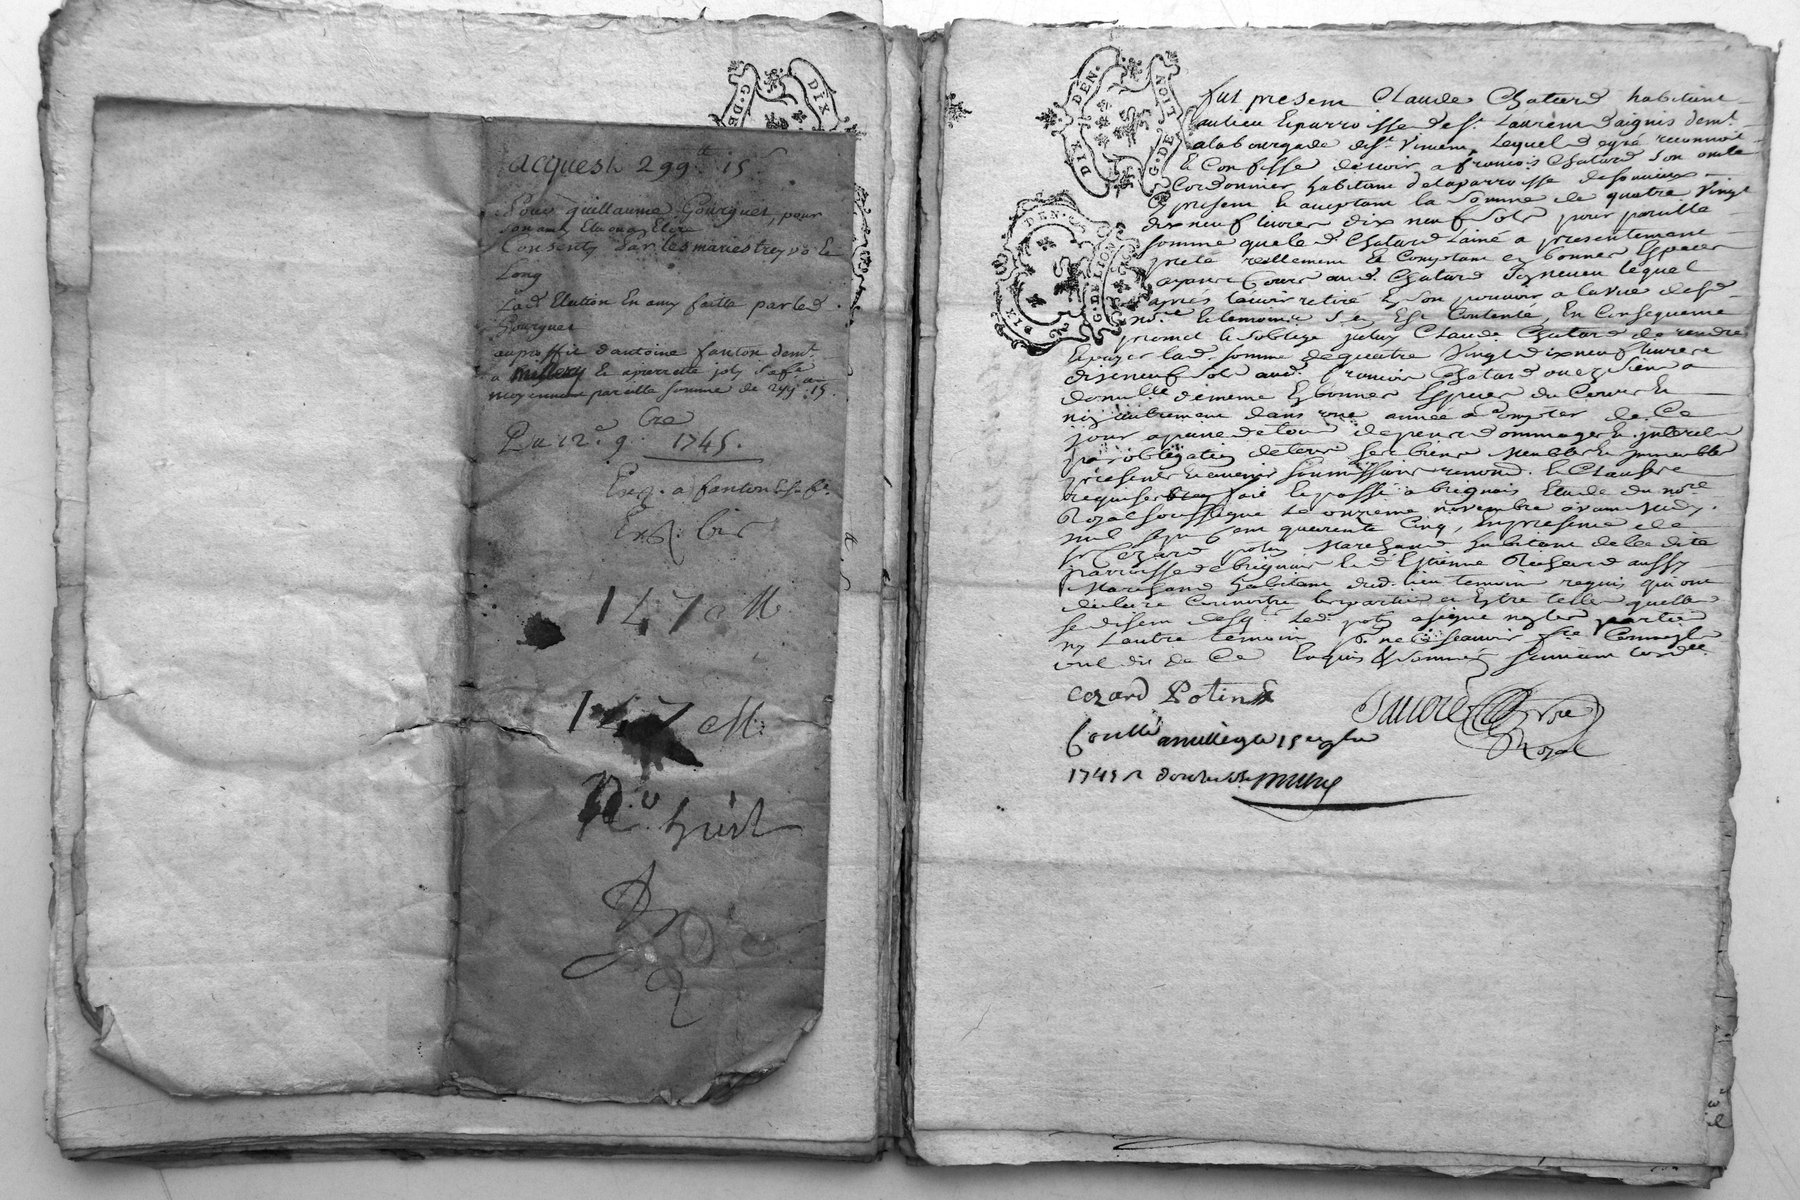 G. DE
DIX
acquest 299 tt 15 s
Pour guillaume Gourguet, pour
son amy Eleu ou a Elire
Consenty par les maries treyvo &
Long
Lad. Election En amy faitte par led.
Gourguet
au proffit d'antoine fanton dem.t
a Millery & apierrette joly Sa fe
moyennant pareille somme de 299 tt 15
Du 12e 9bre 1745.
Exp. a fanton & sa fe.
Exp. bis
147 M
147 M
DIX DEN.
G. DE LION
DIX DEN.
G. DE LION
fut present Claude Chatard habitant
au lieu & parroisse de st. Laurent daignis demt.
a la bourgade de st. Vincent, Lequel de gré reconnoit
& Confesse devoir a francois Chatard son oncle
Cordonnier habitant de la parroisse de
cy present & aceptant la Somme de quatre Vingt
dix neuf livres dix neuf sols pour pareille
somme que led. Chatard Lainé a presentement
preté reellement & Comptant en bonnes Especes
ayant Cours aud. Chatard Son neveu lequel
apres lavoir retiré En son pouvoir a la vue desd.
nore. & temoins s'en Est Contenté, En Consequence
promet & soblige jceluy Claude Chatard de rendre
& payer lad. somme de quatre Vingt dix neuf livres
dix neuf sols aud. francois Chatard ou es siens a
de meme En bonnes Especes du Cours &
non autrement dans une année a compter de Ce
jour a peine de tous depens dommages & jnterets
par obligation de tous ses biens Meubles & jmmeubles
presents & avenir soumissions renond. & Clauses
requises fait & passé a brignais Etude du nore
Royal soussigné Le onzieme novembre avant midy
mil sept Cent quarente Cinq, En presence de
sr Cezard potin Marchand habitant de la dite
parroisse de brignais & d'Estienne Richard aussy
Marchand habitant dud. lieu temoins requis qui ont
declaré Connoitre les parties & Estre telles quelles
se disent Led. potin a signé non les parties
ny Lautre temoin p. ne scavoir Ecrire Comme ils
ont dit de Ce Enquis & sommés suivant lord.ce
Cezard Potin
Nore
Royal
Conllé a millery le 15 9bre
1745 R douze sols